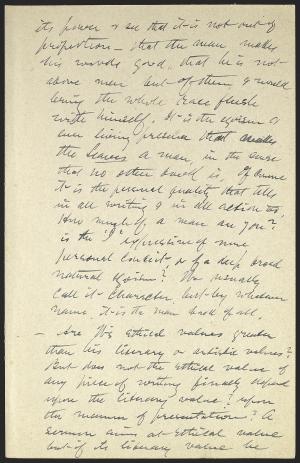 its power & see that it is not out of
proportion — that the man makes
his words good, that he is not
above men but of them, & would
bring the whole race flush
with himself. It is the egoism &
ever living presence that makes
the Leaves a man, in the sense
that no other book is. Of course
it is the personal quality that tells
in all writing & in all action too.
How much of a man are you?
is the "I" expressive of mere
personal conceit or of a deep broad
natural egoism? We usually
call it character, but by whatever
name, it is the man back of all.
— Are W's ethical values greater
than his literary or artistic values?
But does not the ethical value of
any piece of writing finally depend
upon the literary value? upon
the manner of presentation? A
sermon aims at ethical value
but if its literary value be